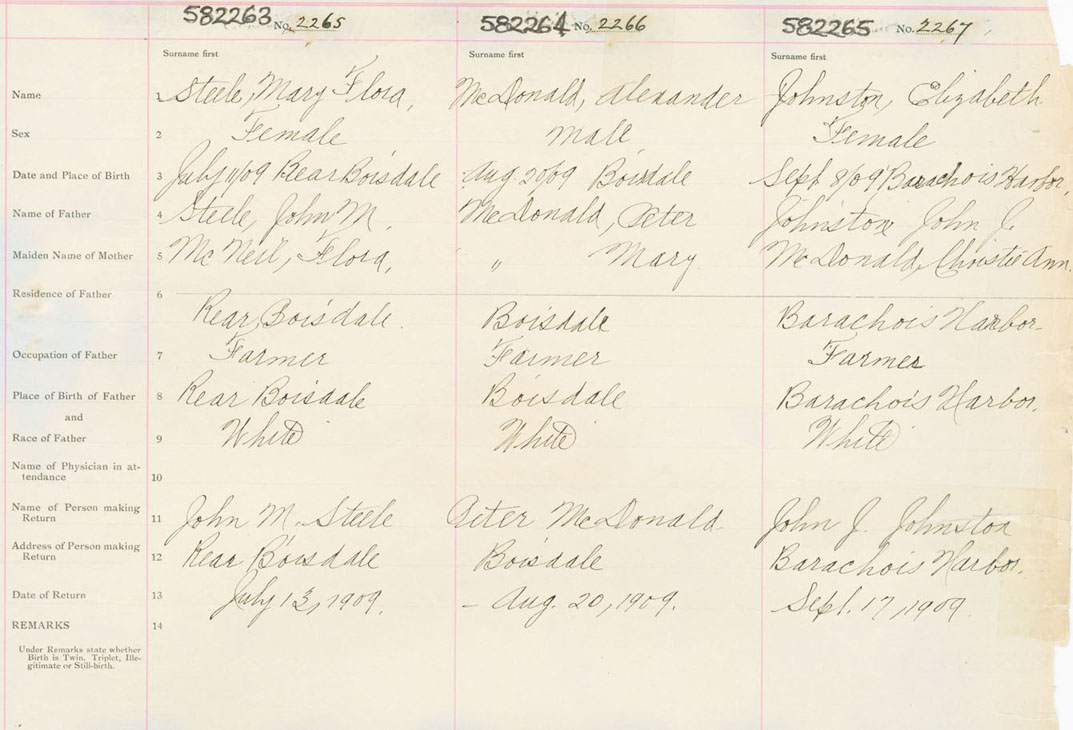 582263 No. 2265 582264 No. 2266 582265 No. 2267
Surname first Surname first Surname first
Name 1 Steele, Mary Flora, McDonald, Alexander Johnston, Elizabeth
Sex 2 Female Male Female
Date and Place of Birth 3 July 11/09 Rear Boisdale Aug. 20/09 Boisdale Sept 8/09 Barachois Harbor,
Name of Father 4 Steele, John M. McDonald, Peter Johnston John J.
Maiden Name of Mother 5 McNeil, Flora, " Mary. McDonald, Christie Ann.
Residence of Father 6
Rear Boisdale. Boisdale Barachois Harbor
Occupation of Father 7 Farmer Farmer Farmer
Place of Birth of Father 8 Rear Boisdale Boisdale Barachois Harbor.
and
Race of Father 9 White White White
Name of Physician in at-
tendance 10
Name of Person making
Return 11 John M. Steele Peter McDonald John J. Johnston
Address of Person making
Return 12 Rear Boisdale Boisdale Barachois Harbor.
Date of Return 13 July 13, 1909. – Aug. 20, 1909. Sept. 17, 1909
REMARKS 14
Under Remarks state whether
Birth is Twin, Triplet, Ille-
gitimate or Still-birth.